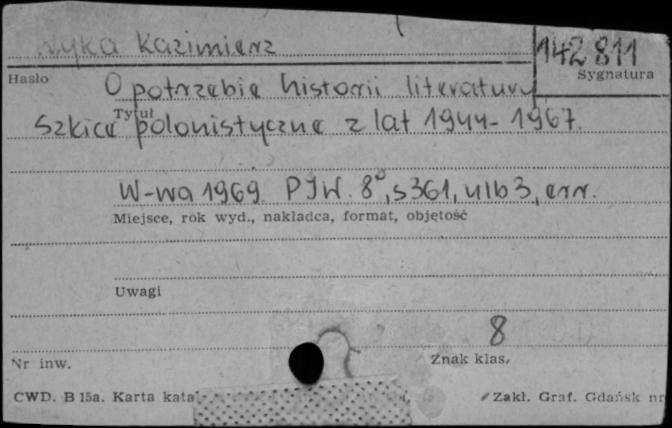 Wyka Kazimierz
142 811
Hasło
Sygnatura
O potrzebie historii literatury
Tytuł
Szkice polonistyczne z lat 1944-1967.
W-wa 1969. PIW. 8°, s 361, nlb 3, err.
Miejsce, rok wyd., nakładca, format, objętość
Uwagi
8
Nr inw.
Znak klas.
CWD. B 15a. Karta kata
Zakł. Graf. Gdańsk nr